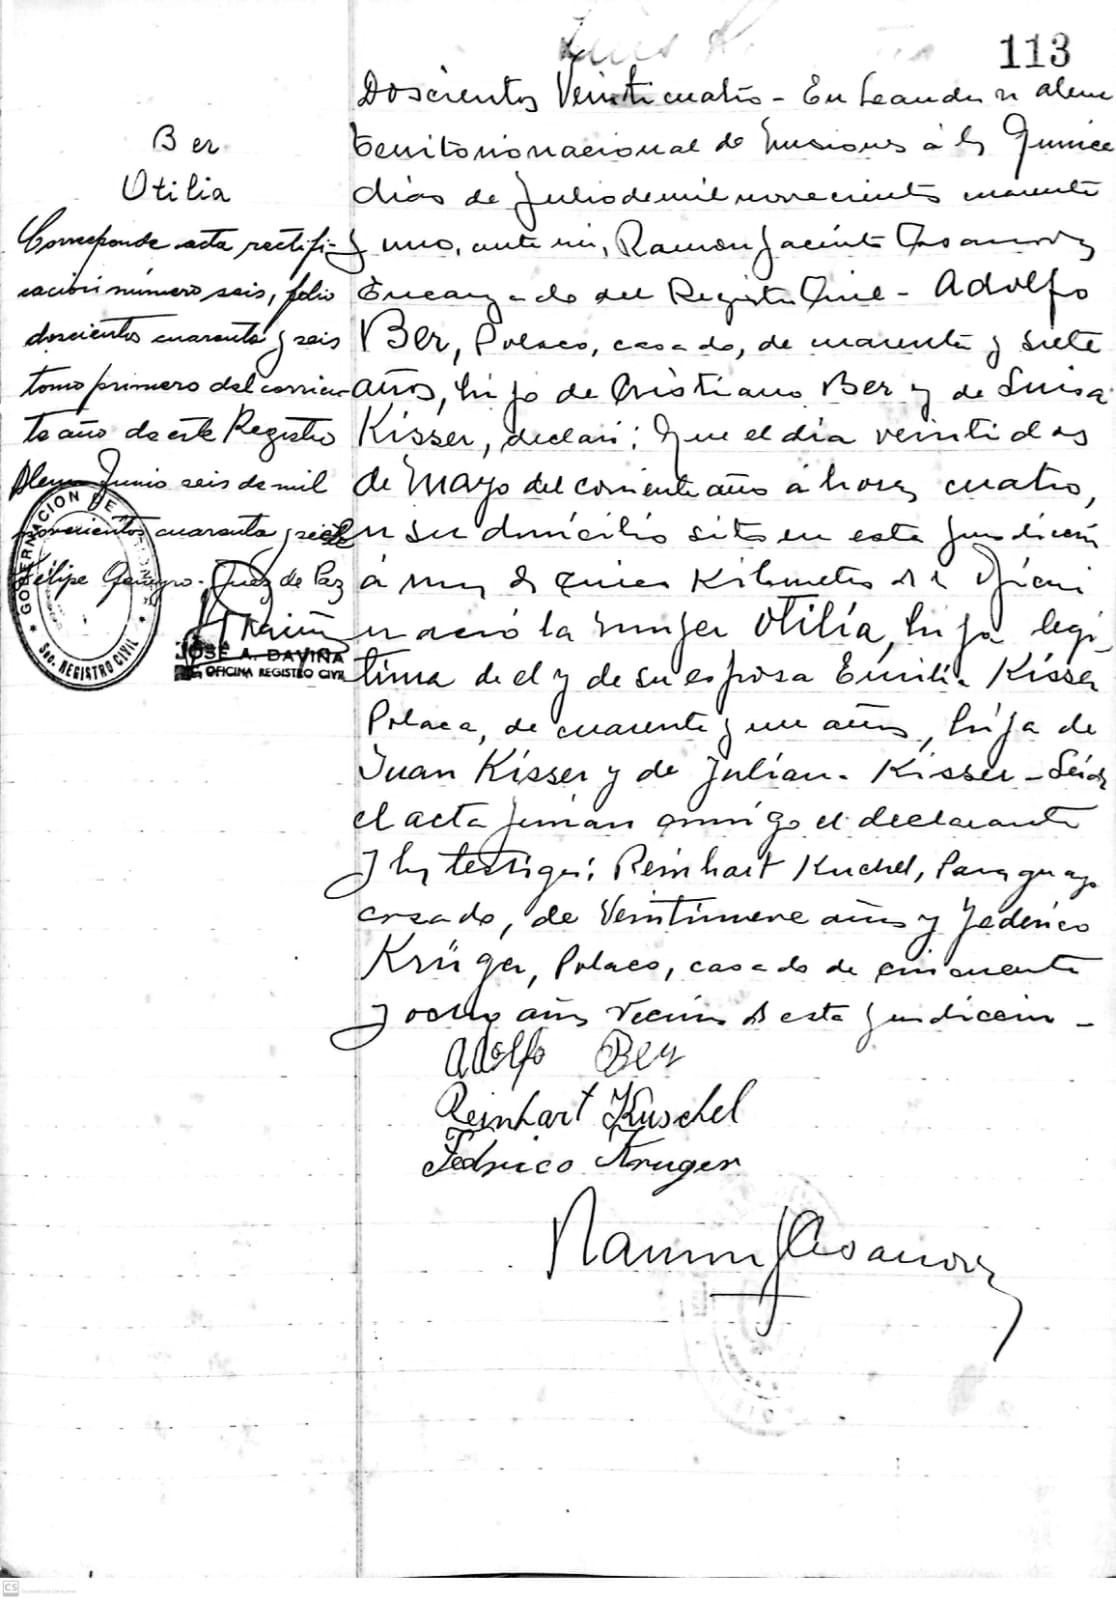 113
Ber
Utilia
Corresponde acta rectifi-
cación número seis, folio
doscientos cuarenta y seis
tomo primero del corrien-
te año de este Registro
Alem Junio seis de mil
novecientos cuarenta y
Felipe Juez de Paz
GOBERNACION DE
Sec. REGISTRO CIVIL
JOSÉ A. DAVIÑA
OFICINA REGISTRO CIVIL
Doscientos Veinticuatro - En Leandro N Alem
territorio nacional de Misiones á los Quince
dias de Julio de mil novecientos cuarenta
y uno, ante mi, Ramon Jacinto Casanova
Encargado del Registro Civil - Adolfo
Ber, Polaco, casado, de cuarenta y siete
años, hijo de Cristiano Ber y de Luisa
Kisser, declaró: Que el día veintidos
de Mayo del corriente año á horas cuatro,
en su domicilio sito en esta jurisdicción
á mas de Kilometros de la Oficina
nació la mujer Otilia, hija legi-
tima de el y de su esposa Emilia Kisser
Polaca, de cuarenta y un años, hija de
Juan Kisser y de Juliana Kisser - Leida
el acta firman conmigo el declarante
y los testigos: Reinhart Kuchel, Paraguayo
casado, de Veintinueve años y Federico
Krüger, Polaco, casado de cincuenta
y ocho años vecinos de esta jurisdiccion -
Adolfo Ber
Reinhart Kuschel
Fedrico Kruger
Ramon J Casanova